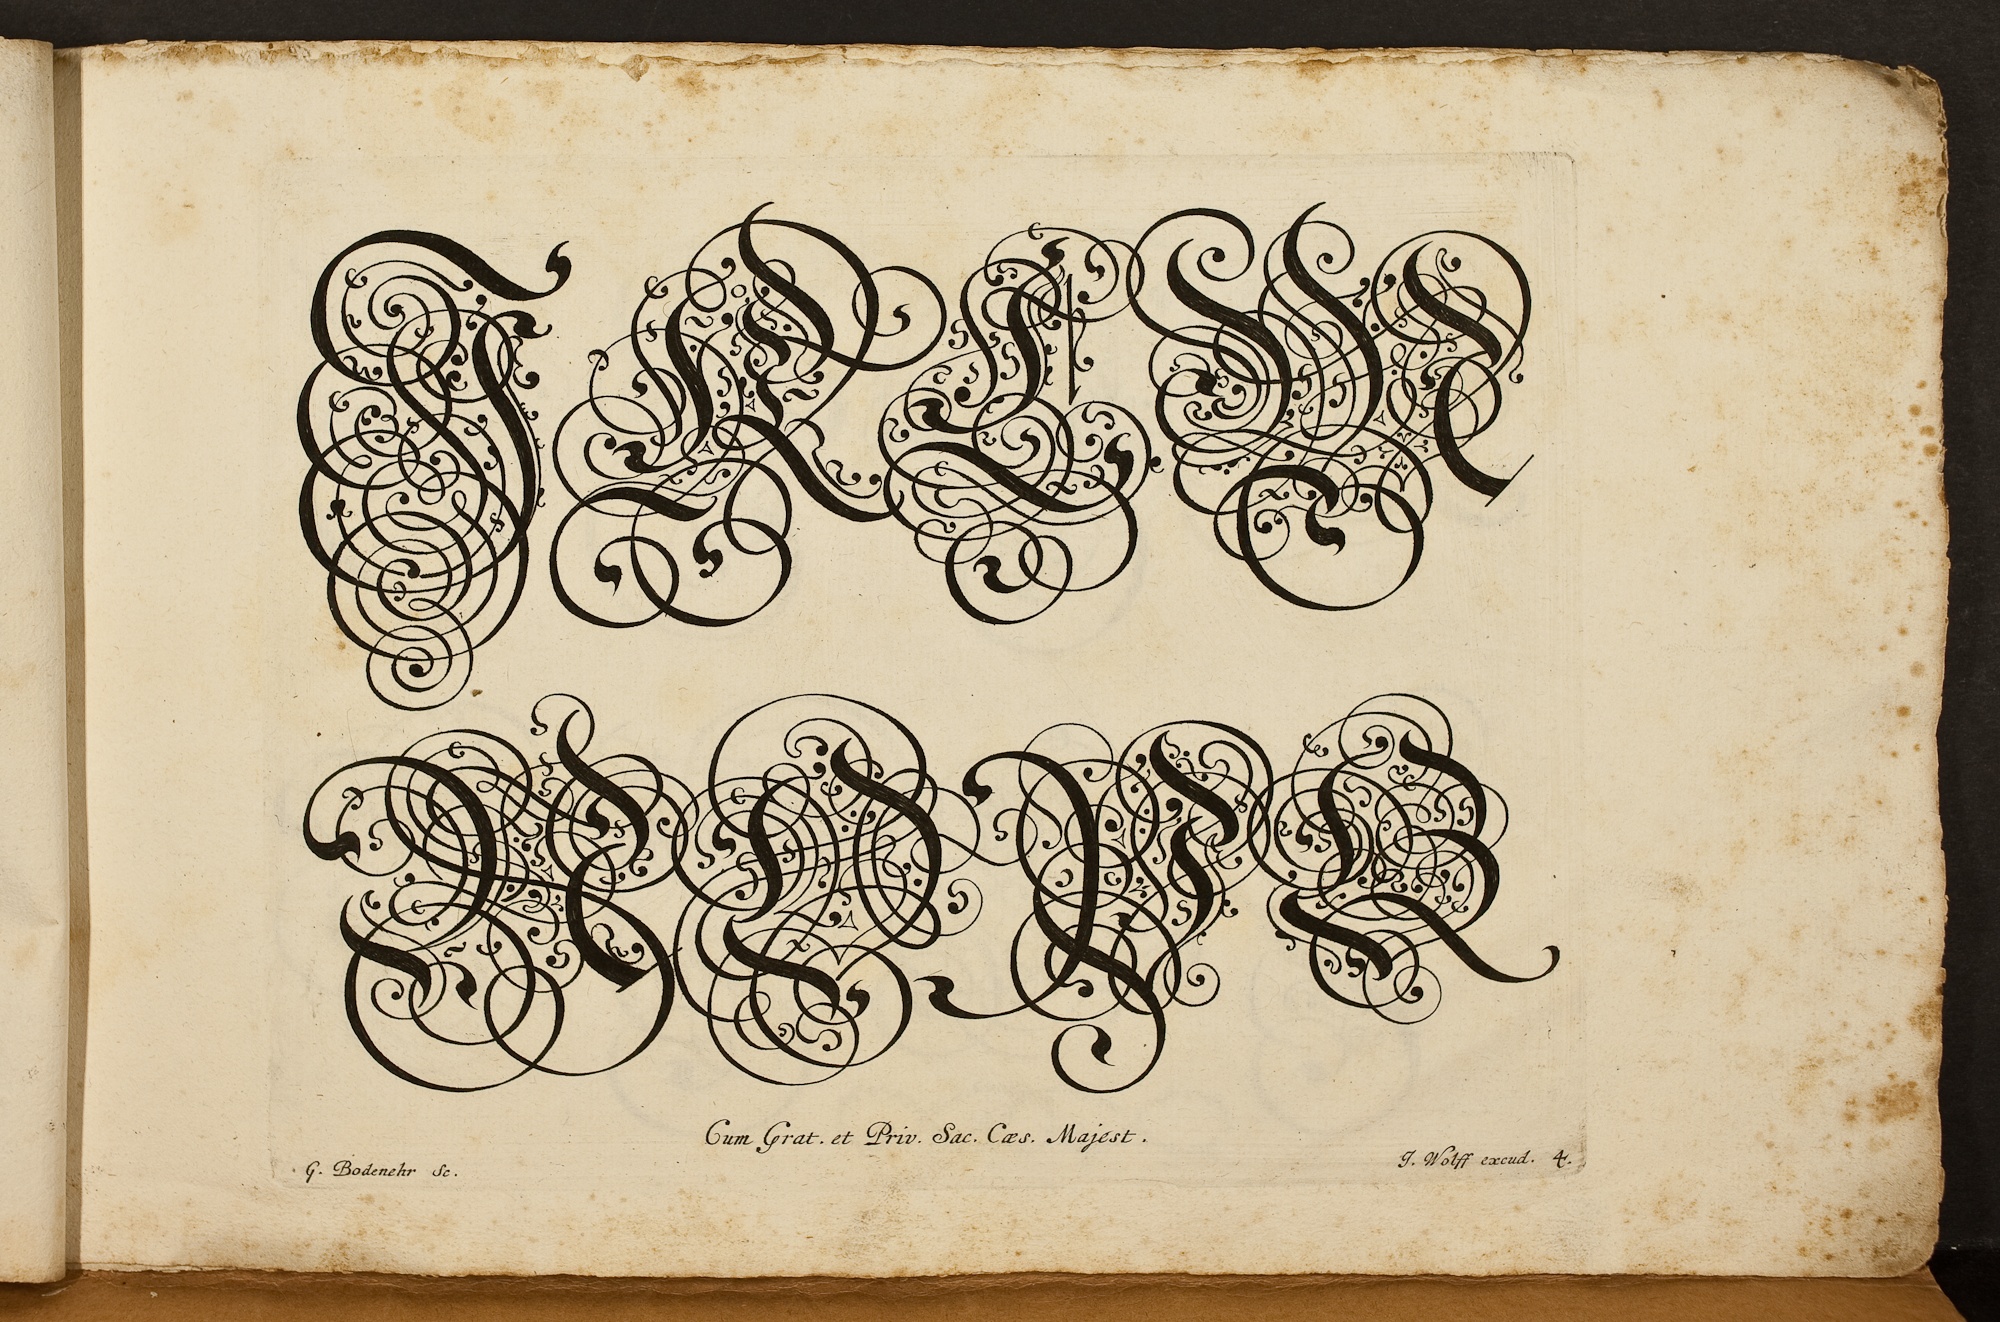 I K L M
N O P Q
Cum Grat. et Priv. Sac. Cæs. Majest.
G. Bodenehr Sc.
J. Wolff excud. 4.